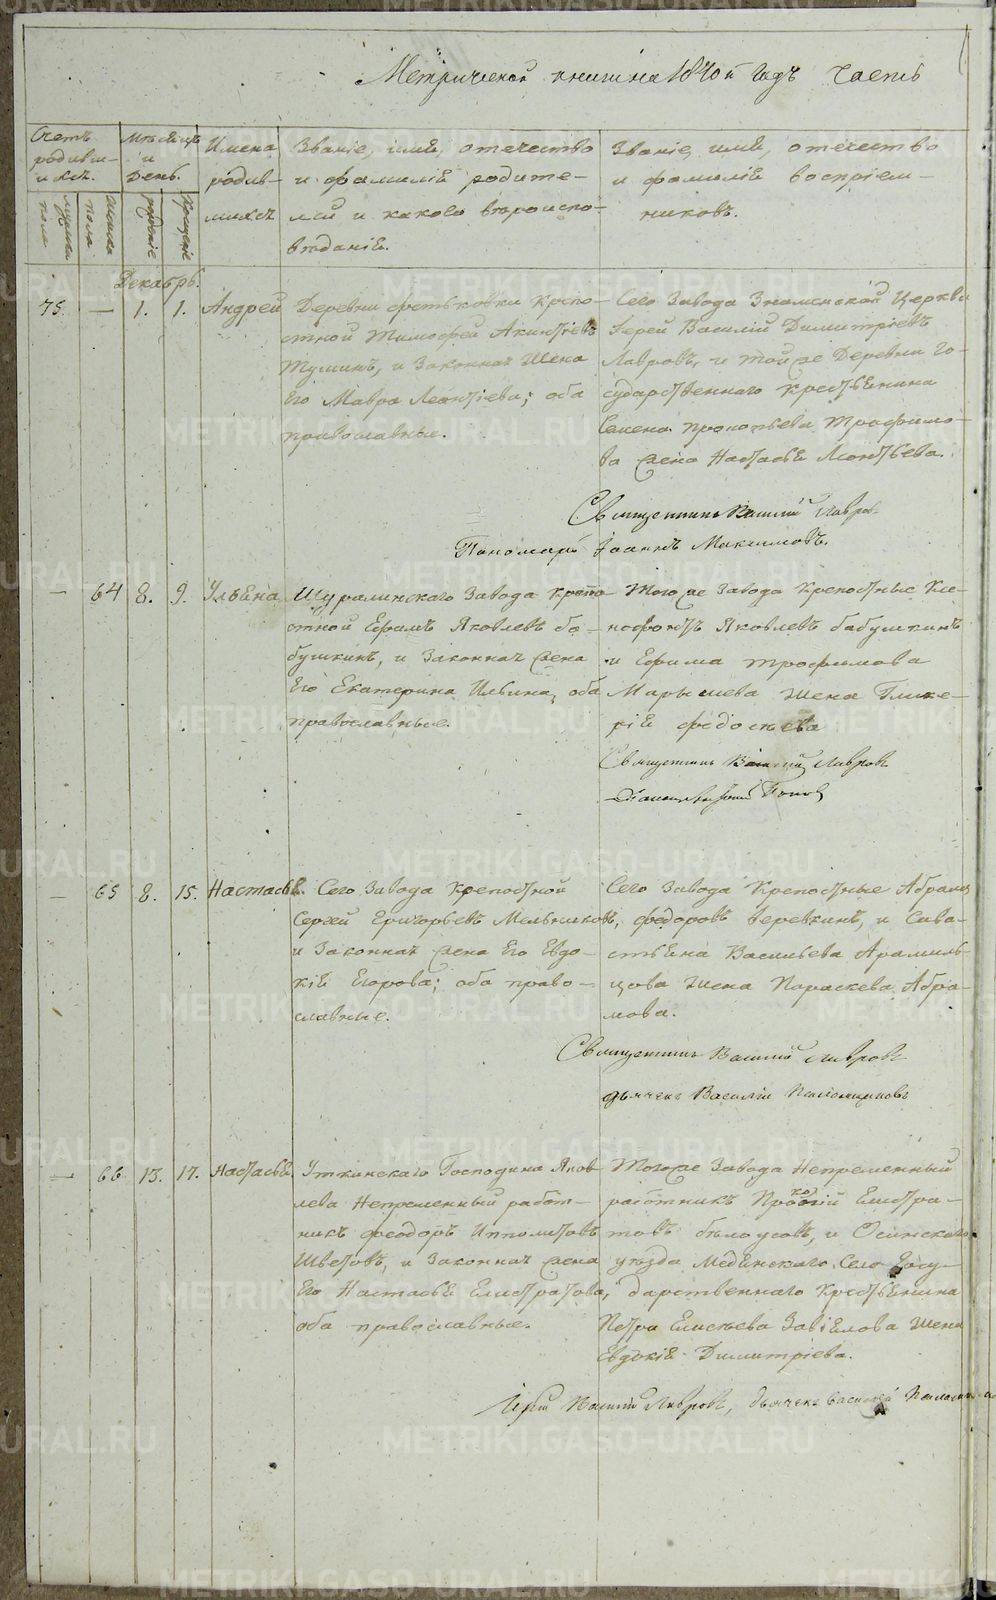 Метрической книги на 1840й годъ часть
Счетъ родившихся.
Мѣсяцъ и день.
Имена родившихся
Званіе, имя, отечество и фамилія родителей и какого вѣроисповѣданія.
Званіе, имя, отечество и фамилія воспріемниковъ.
мужска пола
женска пола
рожденіе
крещеніе
Декабрь.
75. — 1. 1. Андрей
Деревни Крепо-
стной Тимофей
и законная жена
Его Мавра Леонтіева; оба
православные.
Сего Завода Знаменской Церкви
Іерей Василій Димитріевъ
Лавровъ, и тойже Деревни Го-
сударственнаго крестьянина
Семена Прокопьева Трофимо-
ва жена Настасья Леонтьева.
Священникъ Василий Лавровъ
Пономарь Іоаннъ Максимовъ.
— 64 8. 9. Ульяна
Шуралинскаго Завода крепо-
стной Ефимъ Яковлевъ Ба-
бушкинъ, и законная жена
Его Екатерина Ильина, оба
православные.
Тогоже Завода Крепостные Ксе-
нофонтъ Яковлевъ Бабушкинъ
и Ефима Трофимова
Марышева жена Глике-
рія Федосѣева
Священникъ Василий Лавровъ
Попов
— 65 8. 15. Настасья.
Сего Завода Крепостной
Сергей Григорьевъ Мельниковъ,
и законная жена Его Евдо-
кія Егорова; оба право-
славные.
Сего Завода Крепостные Абрамъ
Федоровъ Веревкинъ, и Сава-
стьяна Васильева Арамиль-
цова жена Параскева Абра-
мова.
Священникъ Василий Лавровъ
дьячекъ Василій Паломниковъ
— 66 13. 17. Настасья
Уткинскаго Господина Яков-
лева Непременный работ-
никъ Феодоръ Ипполитовъ
Швецовъ, и законная жена
Его Настасья Елистратова,
оба православные.
Тогоже Завода Непременный
работникъ Елистра-
товъ Бѣлоусовъ, и Осинскаго
уѣзда Медянскаго Села Госу-
дарственнаго Крестьянина
Петра Елисеева Завіялова жена
Евдокія Димитріева.
Іерей Василий Лавровъ, дьячекъ Василій
METRIKI.GASO-URAL.RU